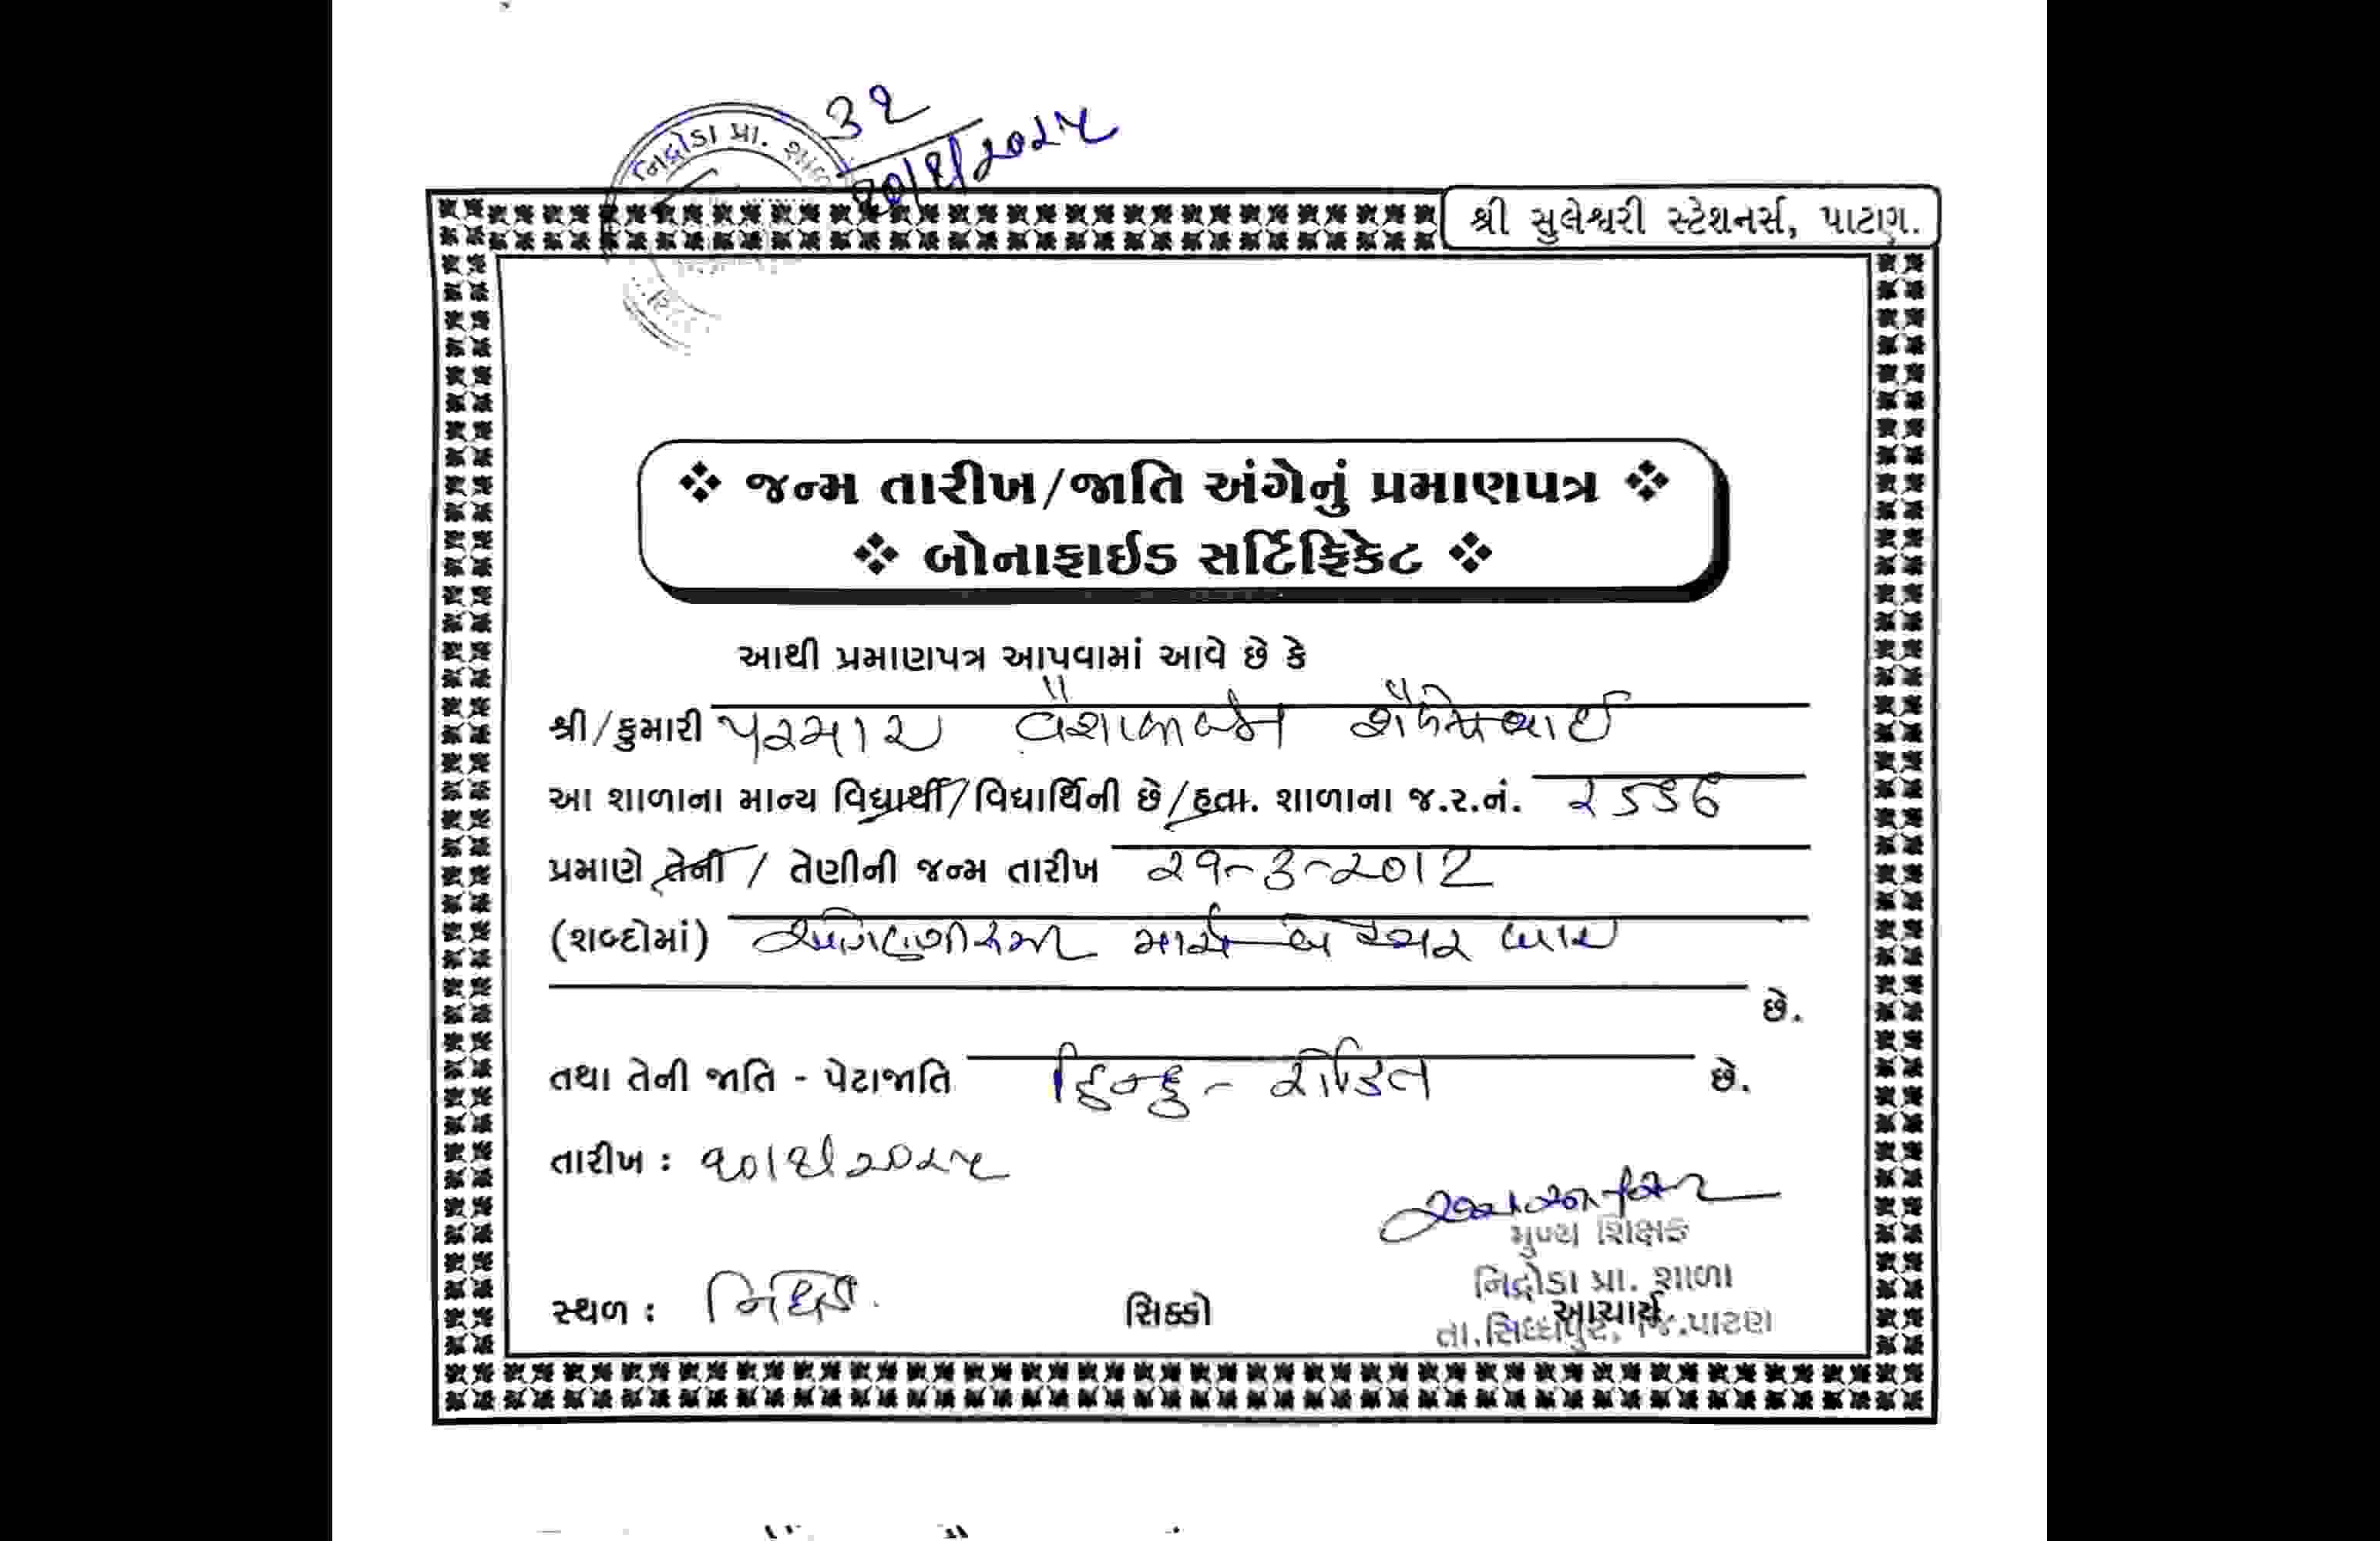 નિદ્રોડા પ્રા. શાળા
૩૨
૧૦/૪/૨૦૨૫
શ્રી સુલેશ્વરી સ્ટેશનર્સ, પાટણ.
❖ જન્મ તારીખ/જાતિ અંગેનું પ્રમાણપત્ર ❖
❖ બોનાફાઈડ સર્ટિફિકેટ ❖
આથી પ્રમાણપત્ર આપવામાં આવે છે કે
શ્રી/કુમારી પરમાર વૈશાળીબેન શૈલેષભાઈ
આ શાળાના માન્ય વિદ્યાર્થી/વિદ્યાર્થિની છે/હતા. શાળાના જ.ર.નં.
પ્રમાણે તેની / તેણીની જન્મ તારીખ ૨૧-૩-૨૦12
(શબ્દોમાં) માર્ચ બે હજાર બાર
છે.
તથા તેની જાતિ - પેટાજાતિ હિન્દુ - છે.
તારીખ : ૧૦/૪/૨૦૨૫
મુખ્ય શિક્ષક
નિદ્રોડા પ્રા. શાળા
સ્થળ : સિક્કો આચાર્ય
તા.સિધ્ધપુર, જિ.પાટણ